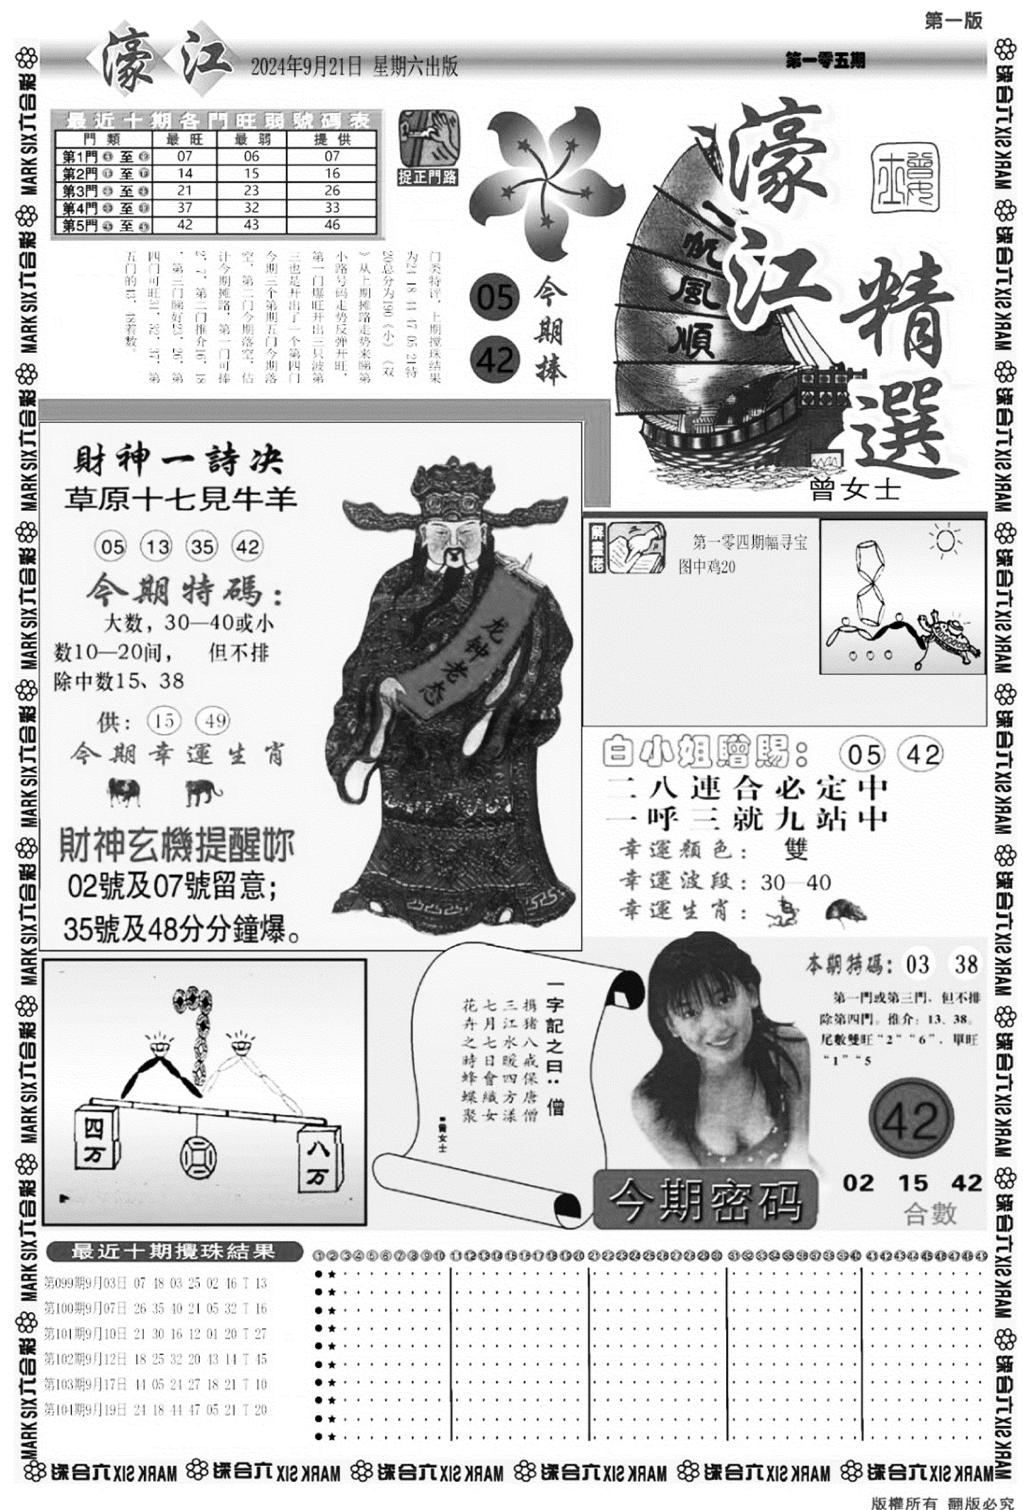 第一版
濠江
2024年9月21日 星期六出版
第一零五期
最近十期各門旺弱號碼表
門類 最旺 最弱 提供
第1門 至 07 06 07
第2門 至 14 15 16
第3門 至 21 23 26
第4門 至 37 32 33
第5門 至 42 43 46
捉正門路
门类特评，上期搅珠结果
为24 18 44 47 05 21特
20总分为190（小）（双
）从上期摊路走势来睇第
小路号码走势反弹开旺，
第一门爆旺开出三只波第
三也是开出了一个第四门
今期三个第期五门今期落
空，第二门今期落空，估
计今期摊路，第一门可捧
四门可旺31，32，37，第
五门的43，48着数。
05
42
今期捧
一帆風順
濠江精選
曾女士
財神一詩决
草原十七見牛羊
05 13 35 42
今期特碼：
大数，30—40或小
数10—20间， 但不排
除中数15、38
供：15 49
今期幸運生肖
財神玄機提醒妳
02號及07號留意；
35號及48分分鐘爆。
龙钟老态
解畫佬
第一零四期幅寻宝
图中鸡20
白小姐贈賜：05 42
二八連合必定中
一呼三就九站中
幸運顏色： 雙
幸運波段：30—40
幸運生肖：
四万
八万
一字記之曰：僧
揹豬八戒保唐僧
三江水暖四方漾
七月七日會織女
花卉之時蜂蝶聚
■曾女士
本期特碼：03 38
第一門或第三門，但不排
除第四門。推介：13、38。
尾數雙旺“2”“6”，單旺
“1”“5
42
今期密码
02 15 42
合數
最近十期攪珠結果
第099期9月03日 07 48 03 25 02 46 T 13
第100期9月07日 26 35 40 21 05 32 T 16
第101期9月10日 21 30 16 12 01 20 T 27
第102期9月12日 18 25 32 20 43 14 T 45
第103期9月17日 44 05 24 27 18 21 T 10
第104期9月19日 24 18 44 47 05 21 T 20
①②③④⑤⑥⑦⑧⑨⑩⑪⑫⑬⑭⑮⑯⑰⑱⑲⑳㉑㉒㉓㉔㉕㉖㉗㉘㉙㉚㉛㉜㉝㉞㉟㊱㊲㊳㊴㊵㊶㊷㊸㊹㊺㊻㊼㊽㊾
MARK SIX六合彩
版權所有 翻版必究